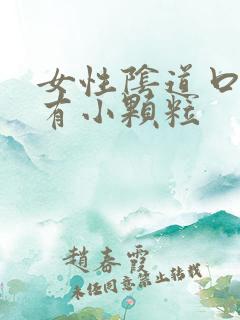 女性陰道口
有小顆粒
趙春霞
未經同意禁止轉載